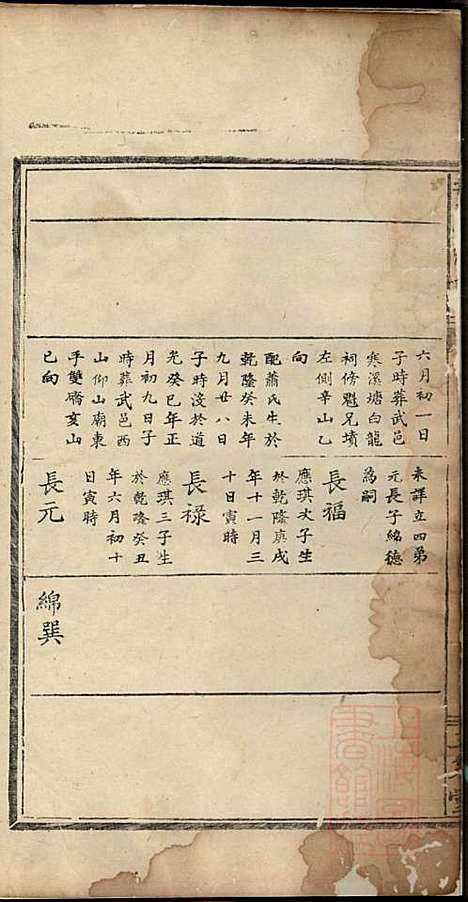 六月初一日
子時葬武邑
寒溪塘白龍
祠傍魁兄墳
左側辛山乙
向
配蕭氏生於
乾隆癸未年
九月廿八日
子時沒於道
光癸巳年正
月初九日子
時葬武邑西
山仰山廟東
手雙礄亥山
巳向
未詳立四弟
元長子綿德
為嗣
長福
應琪次子生
於乾隆庚戌
年十一月三
十日寅時
長祿
應琪三子生
於乾隆癸丑
年六月初十
日寅時
長元
綿巽